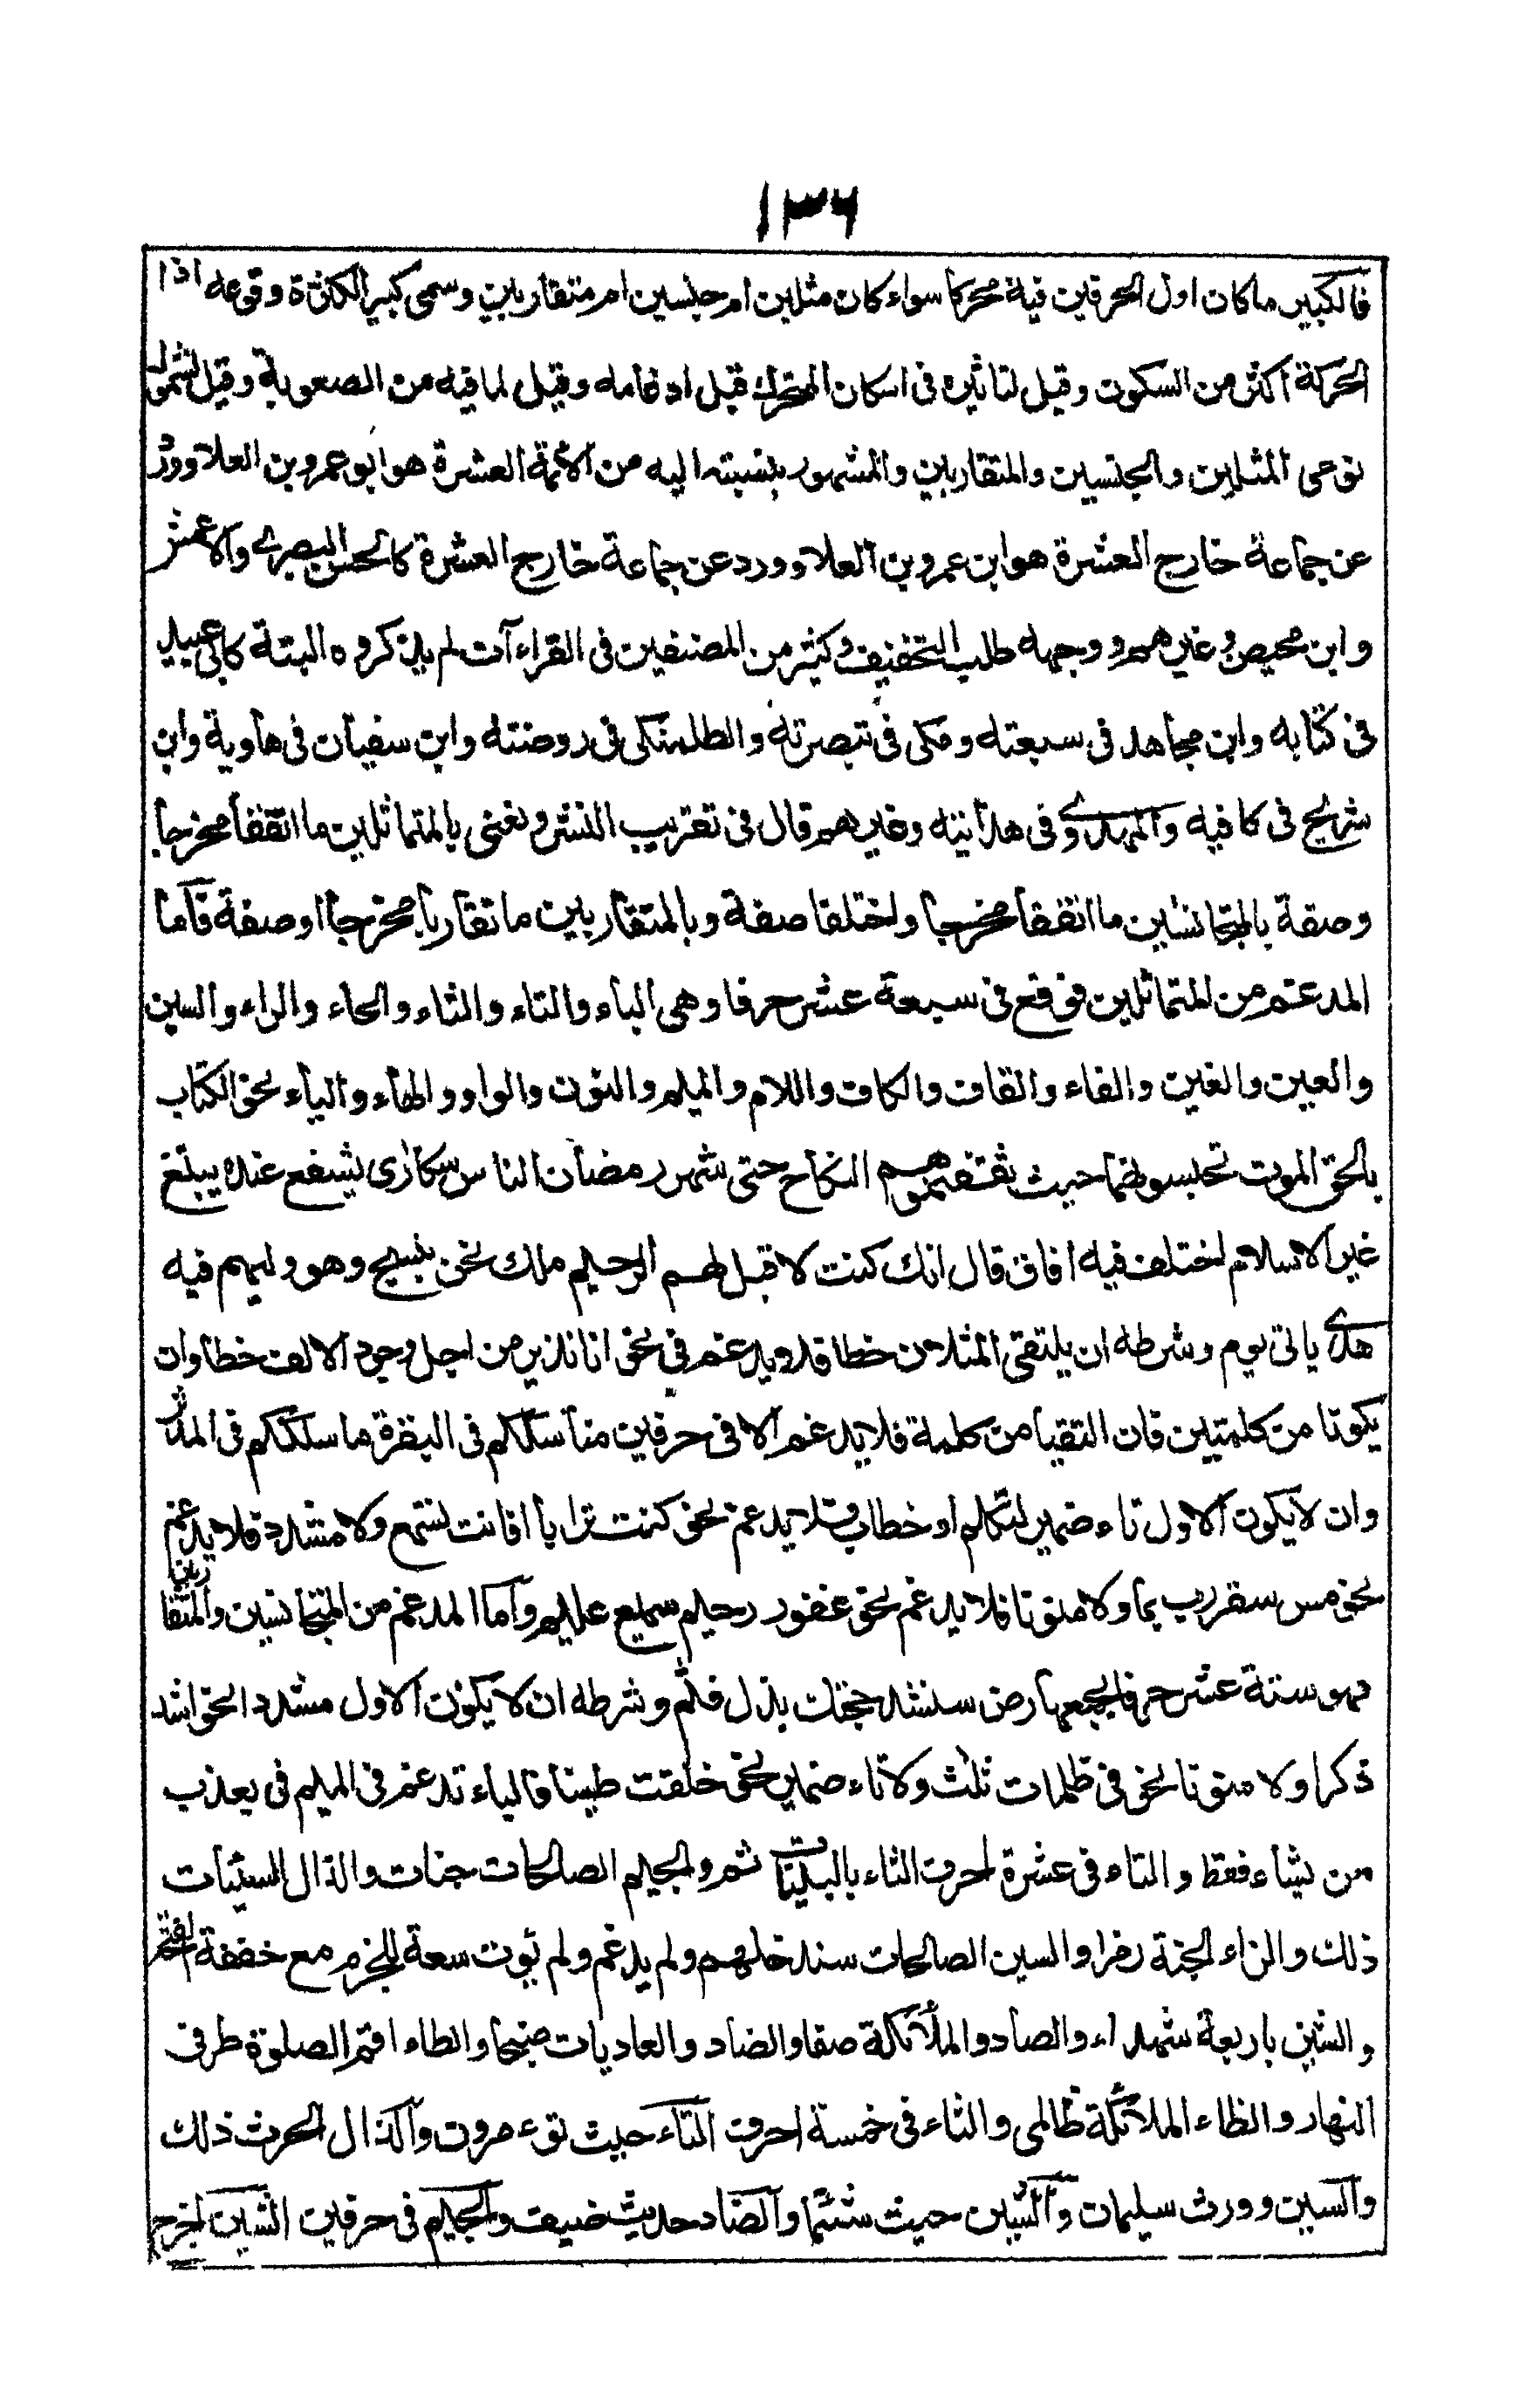 ١٣٦
فالكبير ماكان اول الحرفين فيه محركا سواء كان مثلين ام جنسين ام متقاربين وسمى كبير الكثرة وقوعه اذا
الحركة أكثر من السكون وقيل لتاثيره فى اسكان المتحرك قبل ادغامه وقيل لما فيه من الصعوبة وقيل لشموله
نوعى المثلين والجنسين والمتقاربين والمشهور بنسبته اليه من الأئمة العشرة هو ابو عمرو بن العلا وورد
عن جماعة خارج العشرة هو ابن عمرو بن العلاء وورد عن جماعة خارج العشرة كالحسن البصرى والاعمش
وابن محيصن وغيرهم ووجهه طلب التخفيف وكثير من المصنفين فى القراءآت لم يذكروه البتة كابى عبيد
فى كتابه وابن مجاهد فى سبعته ومكى فى تبصرته والطلمنكى فى روضته وابن سفيان فى هاوية وابن
شريح فى كافيه والمهدوى فى هدايته وغيرهم قال فى تقريب النشر ونعنى بالمتماثلين ما اتفقا مخرجا
وصفة بالمتجانسين ما اتفقا مخرجا واختلفا صفة وبالمتقاربين ما تقاربا مخرجا اوصفة فاما
المدغم من المتماثلين فوقع فى سبعة عشر حرفا وهى الباء والتاء والثاء والحاء والراء والسين
والعين والغين والفاء والقاف والكاف واللام والميم والنون والواو والهاء والياء نحو الكتاب
بالحق الموت تحبسونهما حيث ثقفتموهم النكاح حتى شهر رمضان الناس سكارى يشفع عنده يبتغ
غير الاسلام اختلف فيه افاق قال انك كنت لا قبل لهم الرحيم ملك نحن نسبح وهو وليهم فيه
هدى ياتى يوم وشرطه ان يلتقى المثلان خطا فلا يدغم فى نحو انا نذير من اجل وجود الالف خطا وان
يكونا من كلمتين فان التقيا من كلمة فلا يدغم الا فى حرفين مناسككم فى البقرة ما سلككم فى المدثر
وان لا يكون الاول تاء ضمير لتكلم او خطاب فلا يدغم نحو كنت ترابا افانت تسمع ولا مشدد فلا يدغم
نحو مس سقر رب بما ولا منونا فلا يدغم نحو غفور رحيم سميع عليم واما المدغم من المتجانسين والمتقاربين
فهو ستة عشر حرفا يجمعها رض سنشد حجتك بذل قثم وشرطه ان لا يكون الاول مشددا نحو اشد
ذكرا ولا منونا نحو فى ظلمات ثلث ولا تاء ضمير نحو خلقت طينا فالباء تدغم فى الميم فى يعذب
من يشاء فقط والتاء فى عشرة احرف الثاء بالبينات ثم والجيم الصالحات جنات والذال السيئات
ذلك والزاء الجنة زمرا والسين الصالحات سندخلهم ولم يدغم ولم يؤت سعة للجزم مع خفة الفتحة
والشين باربعة شهداء والصاد والملائكة صفا والضاد والعاديات ضبحا والطاء اقم الصلوة طرفى
النهار والظاء الملائكة ظالمى والثاء فى خمسة احرف التاء حيث تؤمرون والذال الحرث ذلك
والسين وورث سليمان والشين حيث شئتما والضاد حديث ضيف والجيم فى حرفين الشين اخرج